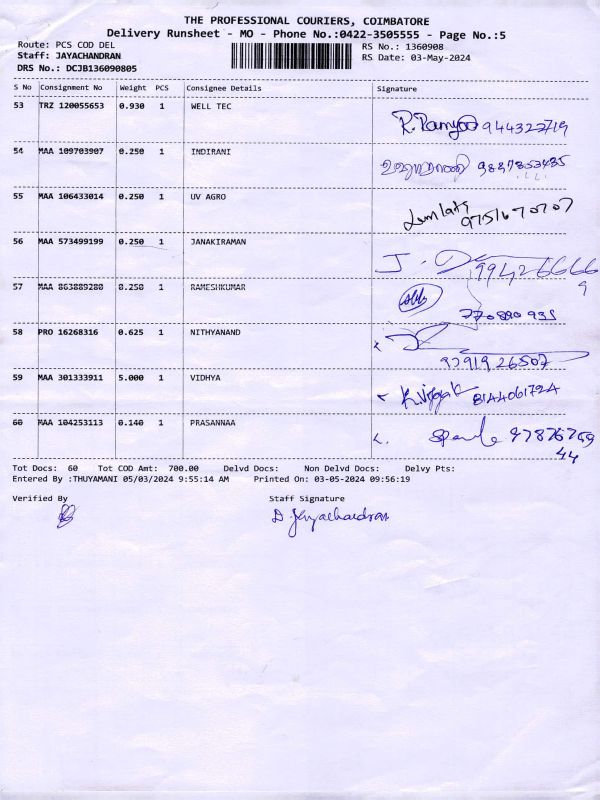 THE PROFESSIONAL COURIERS, COIMBATORE
Delivery Runsheet - MO - Phone No.:0422-3505555 - Page No.:5
Route: PCS COD DEL RS No.: 1360908
Staff: JAYACHANDRAN RS Date: 03-May-2024
DRS No.: DCJB136090805
S No Consignment No Weight PCS Consignee Details Signature
53 TRZ 120055653 0.930 1 WELL TEC
R. Ramya 944322719
54 MAA 109703907 0.250 1 INDIRANI
55 MAA 106433014 0.250 1 UV AGRO
9751670707
56 MAA 573499199 0.250 1 JANAKIRAMAN
57 MAA 863889280 0.250 1 RAMESHKUMAR
58 PRO 16268316 0.625 1 NITHYANAND
59 MAA 301333911 5.000 1 VIDHYA
60 MAA 104253113 0.140 1 PRASANNAA
Tot Docs: 60 Tot COD Amt: 700.00 Delvd Docs: Non Delvd Docs: Delvy Pts:
Entered By :THUYAMANI 05/03/2024 9:55:14 AM Printed On: 03-05-2024 09:56:19
Verified By Staff Signature
D. Jayachandran